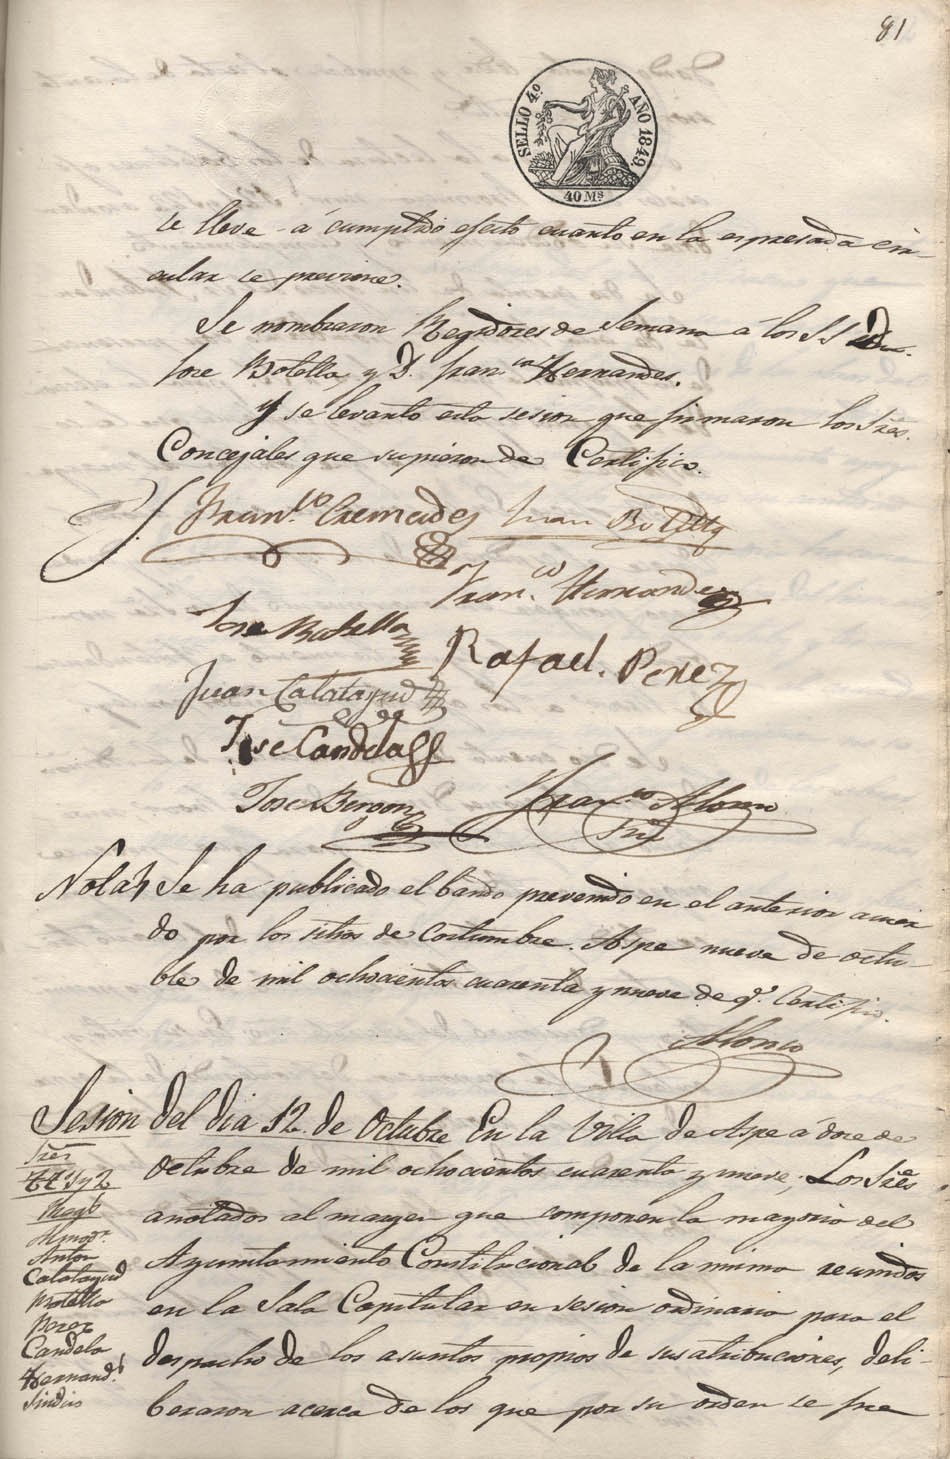 81
SELLO 4º AÑO 1849.
40 Mˢ
se lleve á cumplido efecto cuanto en la espresada cir-
cular se previene.
Se nombraron Regidores de Semana á los SS D.
Jose Botella y D. Franco Hernandes.
Y se levanto esta sesion que firmaron los Sres.
Concejales que supieron de Certifico.
Franco Cremades Juan Botella
Franco Hernandez
Jose Botella
Rafael Perez
Juan Calatayud
Jose Candela
Jose Bergon
Franco Alonso
Srio
Nota Se ha publicado el bando prevenido en el anterior acuer
do por los sitios de costumbre. Aspe nueve de octu-
bre de mil ochocientos cuarenta y nueve de q.e Certifico.
Alonso
Sesion del dia 12 de Octubre En la Villa de Aspe á doce de
Octubre de mil ochocientos cuarenta y nueve; Los Sres
anotados al margen que componen la mayoria del
Ayuntamiento Constitucional de la misma reunidos
en la Sala Capitular en sesion ordinaria para el
despacho de los asuntos propios de sus atribuciones, deli-
beraron acerca de los que por su orden se pre
Sres
1º y 2
Regs
Almodr.
Anton
Calatayud
Botella
Perez
Candela
Hernands
Sindico